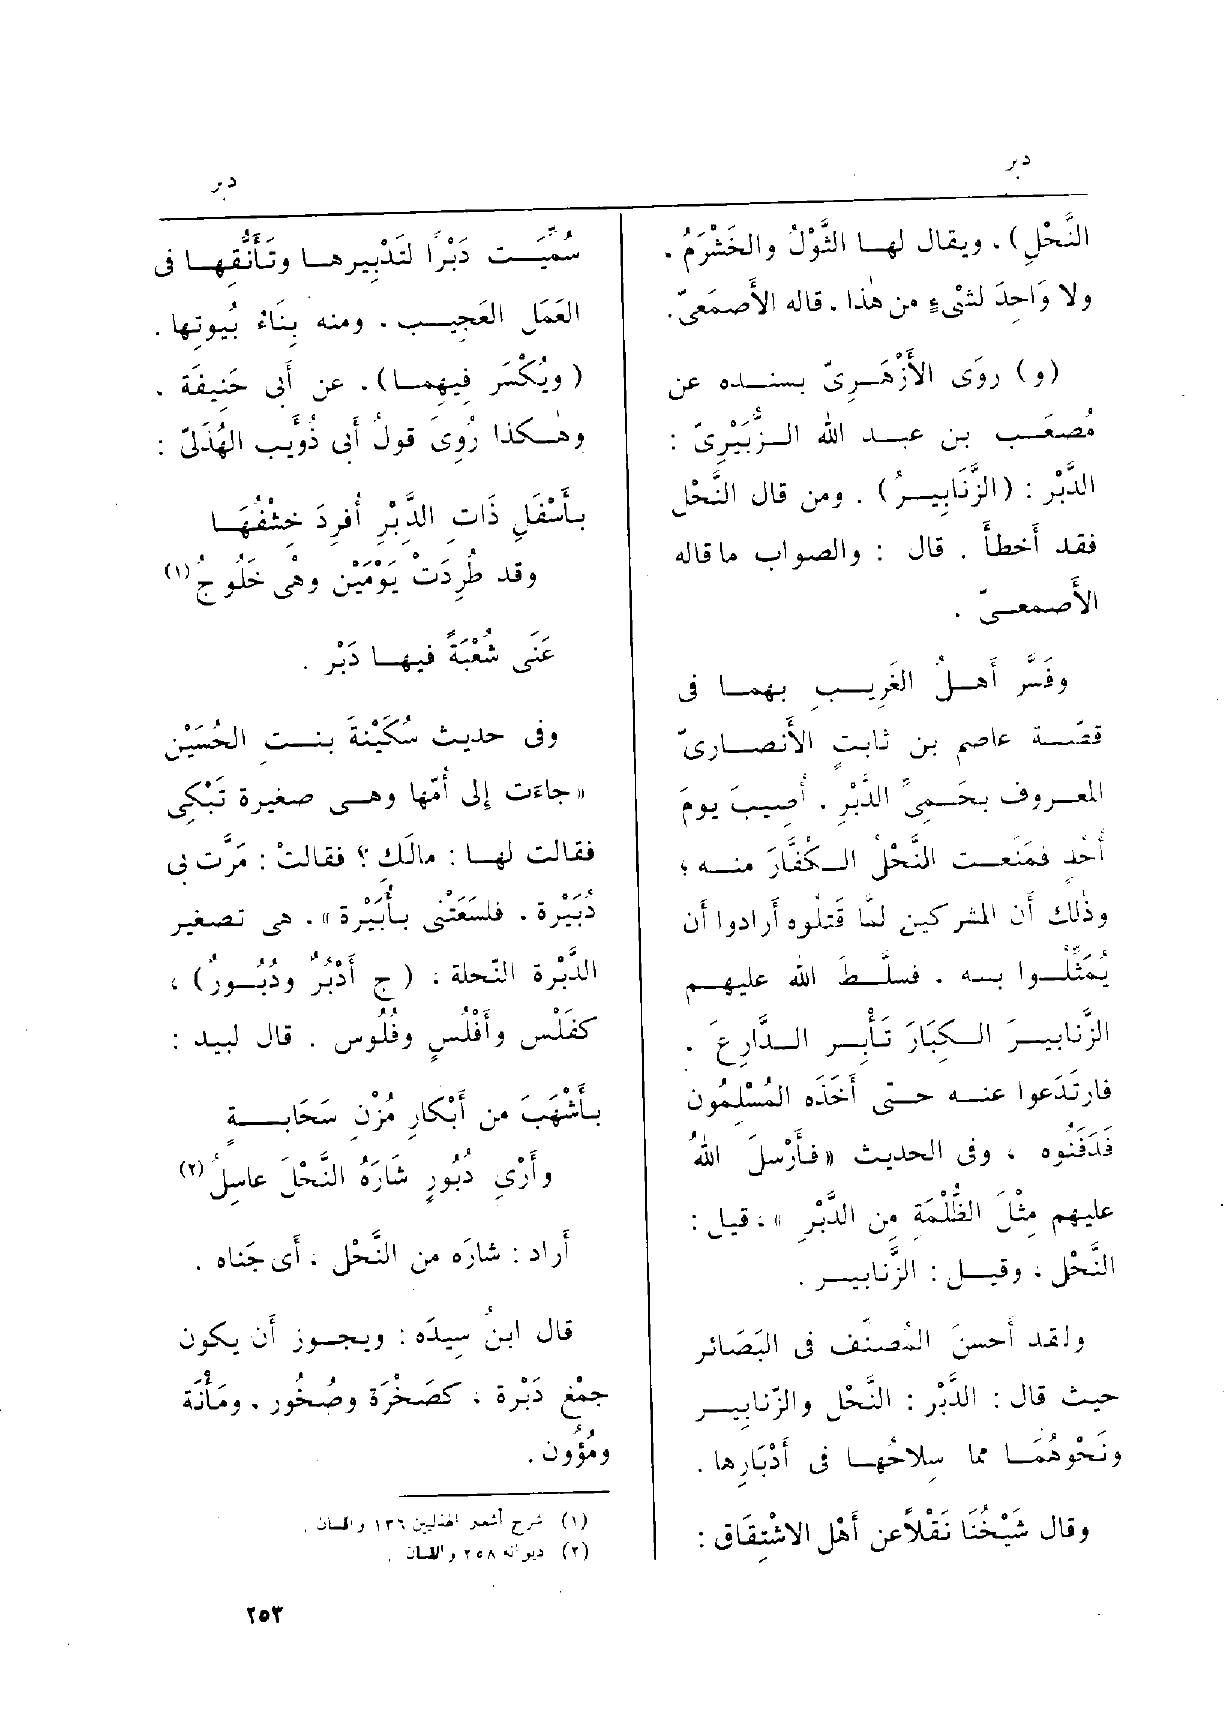 دبر
دبر
النَّحْلِ) . ويقال لهـا الثَّوْلُ والخَشْرَمُ .
ولا وَاحِدَ لشىْءٍ من هٰذا . قاله الأَصمَعىّ .
(و) روَى الأَزْهَـرِىّ بسنـده عن
مُصعَب بن عبـد الله الـزُّبَيْرِىّ :
الدَّبْر : (الزَّنَابِيـرُ) . ومن قال النَّحْل
فقد أَخطأَ . قال : والصواب ما قاله
الأَصمعـىّ .
وفَسَّر أَهـلُ الغَرِيـبِ بهمـا فى
قصّـة عاصم بن ثابتٍ الأَنصـارىّ
المعـروف بحَـمِىِّ الدَّبْرِ . أُصِيبَ يومَ
أُحُدٍ فمَنَعـت النَّحْلُ الـكُفَّارَ منـه ؛
وذٰلك أَن المشركين لمَّا قَتَلُوه أَرادوا أَن
يُمَثِّلُـوا بـه . فسلَّـطَ الله عليهـم
الزَّنابيـرَ الـكِبَارَ تَـأْبِـر الـدَّارِعَ .
فارتَدَعوا عنـه حـتى أَخَذَه المُسْلِمُون
فدَفَنُوه ، وفى الحديث «فـأَرْسلَ اللهُ
عليهم مِثْلَ الظُّلَّةِ مِن الدَّبْرِ » ، قيل :
النَّحْل ، وقيـل : الزَّنابيـر .
ولقد أَحسنَ المُصنِّف فى البَصَائر
حيث قال : الدَّبْر : النَّحْل والزّنابيـر
ونَحْوهُمَـا مما سِلاحُهـا فى أَدْبَارِها .
وقال شَيْخُنَا نَقْلاً عن أَهْل الاشْتِقَاق :
سُمِّيَـت دَبْرًا لتَدْبِيرهـا وتَأَنُّقِهـا فى
العَمَل العَجِيـب . ومنه بِنَاءُ بُيوتِها .
(ويُكْسَر فِيهِمـا) . عن أَبى حَنِيفَة .
وهٰـكذا رُوِىَ قولُ أَبى ذُؤَيب الهُذَلىّ :
بـأَسْفَلِ ذَاتِ الدَّبْرِ أُفرِدَ خِشْفُهَـا
وقد طُرِدَتْ يَوْمَيْن وهْىَ خَلُوجُ (١)
عَنَى شُعْبَةً فيهـا دَبْر .
وفى حديث سُكَيْنةَ بنـتِ الحُسَيْن
«جاءَت إِلى أُمّها وهـى صغيرة تَبْكِى
فقالت لهـا : مالَكِ ؟ فقالتْ : مَرَّت بى
دُبَيْرة . فلسَعَتْنى بـأُبَيْرة» . هى تصغير
الدَّبْرة النّحلة ، (ج أَدْبُرٌ ودُبُـورٌ) ،
كفَلْس وأَفْلُسٍ وفُلُوس . قال لبيد :
بـأَشْهَبَ من أَبْكارِ مُزْنِ سَحَابـةٍ
وأَرْىِ دُبُورٍ شَارَهُ النَّحْلَ عاسِلُ (٢)
أَراد : شارَه من النَّحْل ، أَى جَناه .
قال ابنُ سِيدَه : ويجـوز أَن يكون
جمْع دَبْرة ، كصَخْرَة وصُخُور . ومَأْنَة
ومُؤُون .
(١) شرح أشعار الهذليين ١٣٦ واللسان .
(٢) ديوانه ٢٥٨ واللسان .
٢٥٣